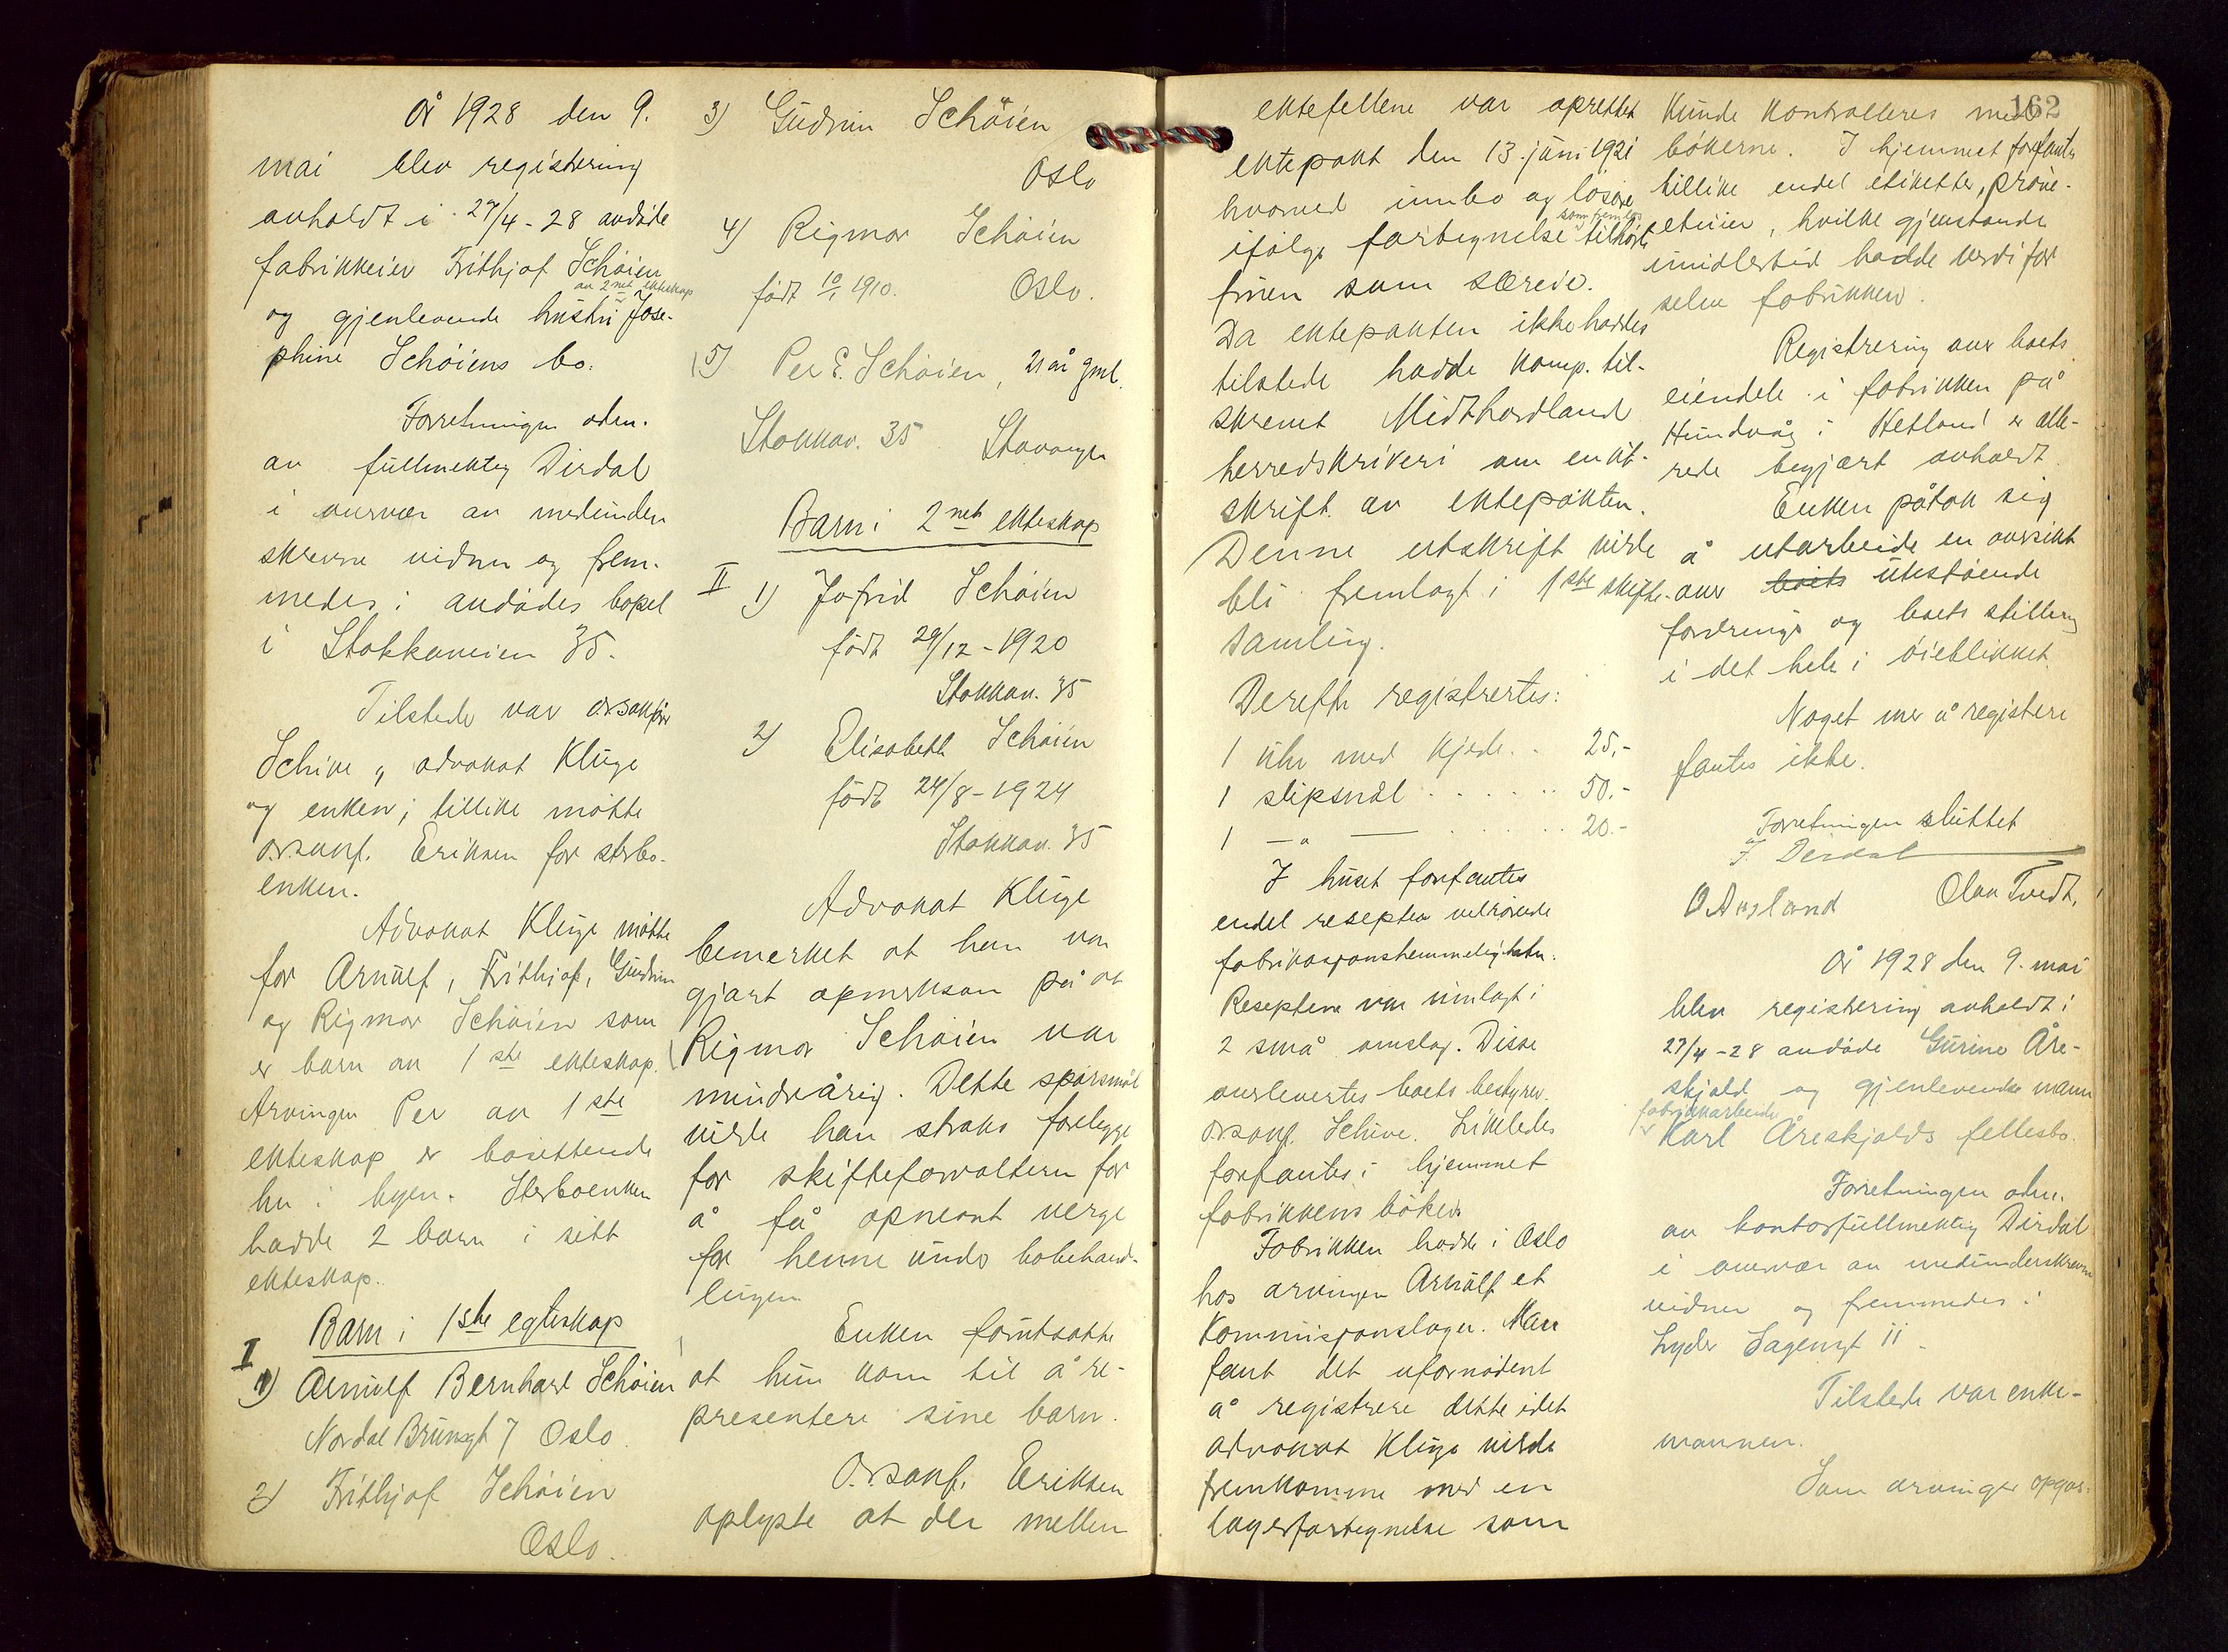 År 1928 den 9.
mai blev registrering
avholdt i 27/4-28 avdöde
fabrikkeier Frithjof Schöien
av 2net ekteskap
og gjenlevende hustru Jose-
phine Schöiens bo.
Forretningen adm.
av fullmektig Dirdal
i overvær av medunder
skrevne vidner og frem-
medes i avdödes bopel
i Stokkaveien 35.
Tilstede var o.r.sakförer
Schive, advokat Kluge
og enken; tillike mötte
o.r.sakf. Eriksen for sterbo-
enken.
Advokat Kluge mötte
for Arnulf, Frithjof, Gudrun
og Rigmor Schöien som
er barn av 1ste ekteskap.
Arvingen Per av 1ste
ekteskap er bosittende
her i byen. Sterboenken
hadde 2 barn i sitt
ekteskap.
Barn i 1ste egteskap
I
1) Arnulf Bernhard Schöien
Nordal Brunsgt 7 Oslo
2) Frithjof Schöien
Oslo.
3) Gudrun Schöien
Oslo
4) Rigmor Schöien
födt 10/1 1910. Oslo.
5) Per E. Schöien, 21 år gml.
Stokkav. 35 Stavanger
Barn i 2net ekteskap
II 1) Jofrid Schöien
födt 29/12-1920
Stokkav. 35
2) Elisabeth Schöien
födt 24/8-1924
Stokkav. 35
Advokat Kluge
bemerket at han var
gjort opmerksom på at
Rigmor Schöien var
mindreårig. Dette spörsmål
vilde han straks forelegge
for skifteforvalteren for
å få opnevnt verge
for henne under bobehand-
lingen
Enken forutsatte
at hun kom til å re-
presentere sine barn.
O.r.sakf. Eriksen
oplyste at der mellem
ektefellene var oprettet
ektepakt den 13. juni 1921
hvorved innbo og lösöre
som fremlas
ifölge fortegnelse tilhörte
fruen som særeie.
Da ektepakten ikke haddes
tilstede hadde komp. til-
skrevet Midthordland
herredskriveri om en ut-
skrift av ektepakten.
Denne utskrift vilde
bli fremlagt i 1ste skifte-
samling.
Derefter registrertes:
1 uhr med kjede . . 25,-
1 slipsnål . . . . . . 50.-
1 -"- . . . . . . 20.-
I huset forfantes
endel resepter vedrörende
fabrikasjonshemmeligheter.
Reseptene var innlagt i
2 små omslag. Disse
overlevertes boets bestyrer
o.r.sakf. Schive. Likeledes
forfantes i hjemmet
fabrikkens böker
Fabrikken hadde i Oslo
hos arvingen Arnulf et
kommisjonslager. Man
fant det uforödent
å registrere dette idet
advokat Kluge vilde
fremkomme med en
lagerfortegnelse som
162
kunde kontrolleres med
bökerne. I hjemmet forfantes
tillike endel etiketter, pröve-
etuier, hvilke gjenstande
imidlertid hadde verdi for
selve fabrikken.
Registrering over boets
eiendele i fabrikken på
Hundvåg i Hetland er alle-
rede begjært avholdt
Enken påtok sig
å utarbeide en oversikt
over boets utestående
fordringer og boets stilling
i det hele i öieblikket.
Noget mer å registere
fantes ikke.
Forretningen sluttet
J. Dirdal
O. Aasland Olav Tvedt,
År 1928 den 9. mai
blev registrering avholdt i
27/4-28 avdöde Gurine Åre-
skjold og gjenlevende mann
fabrikkarbeider
Karl Åreskjolds fellesbo.
Forretningen adm.
av kontorfullmektig Dirdal
i overvær av medunderskrevne
vidner og fremmedes i
Lyder Sagengt 11.
Tilstede var enke-
mannen.
Som arvinger opgav